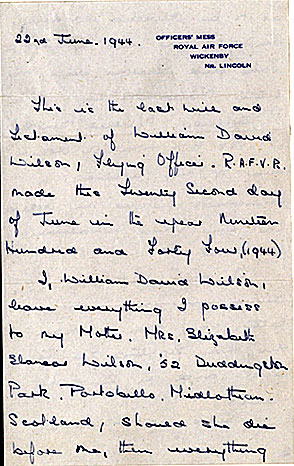 22nd June. 1944.
OFFICERS' MESS
ROYAL AIR FORCE
WICKENBY
NR. LINCOLN
This is the last will and
testament of William David
Wilson, Flying Officer. R.A.F.V.R.
made this Twenty Second day
of June in the year Nineteen
Hundred and Forty Four, (1944)
I, William David Wilson,
leave everything I possess
to my Mother. Mrs. Elizabeth
Eleanor Wilson, 52 Duddingston
Park. Portobello. Midlothian.
Scotland, should she die
before me, then everything